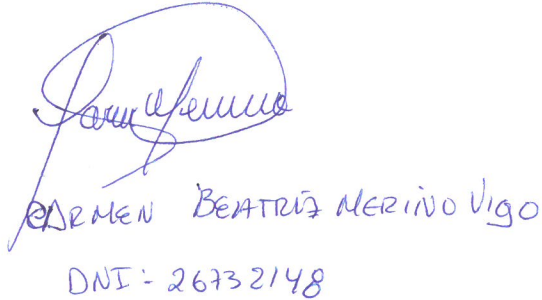 CARMEN BEATRIZ MERINO VIGO
DNI: 26732148